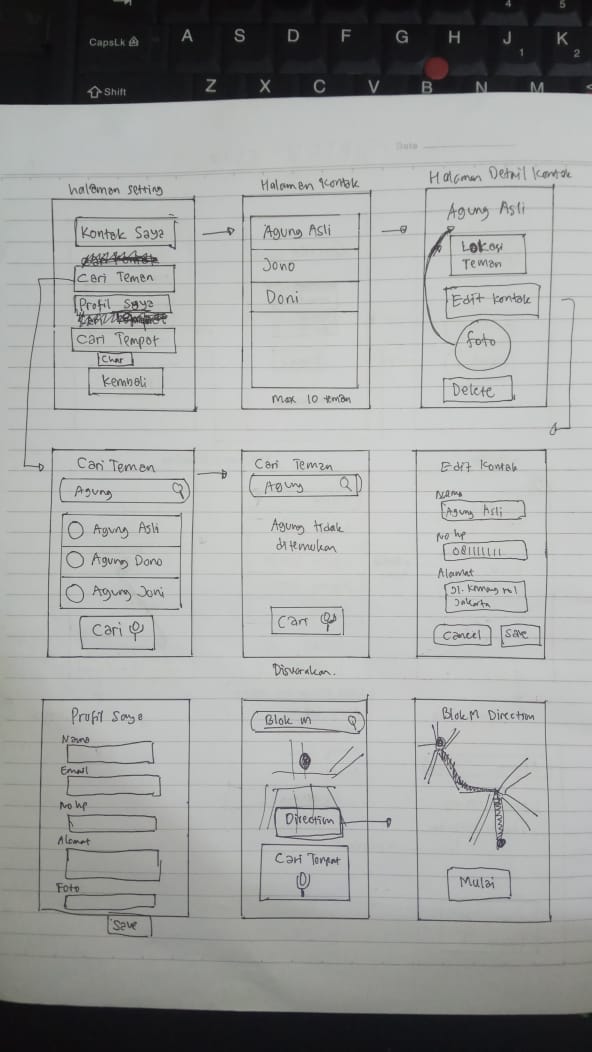 4
5
CapsLk
A
S
D
F
G
H
J
1
K
2
Shift
Z
X
C
V
B
N
M
<
Date
halaman setting
Kontak Saya
Cari Teman
Profil Saya
Cari Tempat
Char
Kembali
Halaman Kontak
Agung Asli
Jono
Doni
Max 10 teman
Halaman Detail Kontak
Agung Asli
Lokasi
Teman
Edit kontak
foto
Delete
Cari Teman
Agung
Agung Asli
Agung Dono
Agung Joni
Cari
Cari Teman
Agung
Agung tidak
ditemukan
Cari
Disuarakan.
Edit Kontak
Nama
Agung Asli
No hp
081111111
Alamat
Jl. Kemang no 1
Jakarta
Cancel
Save
Profil Saya
Nama
Email
No hp
Alamat
Foto
Save
Blok M
Direction
Cari Tempat
Blok M Direction
Mulai